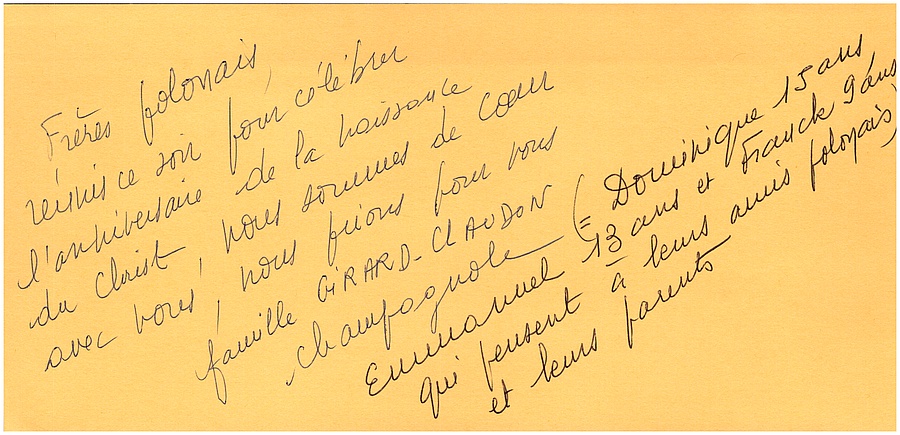 Frères polonais,
réunis ce soir pour célébrer
l'anniversaire de la naissance
du Christ, nous sommes de cœur
avec vous, nous prions pour vous
famille GIRARD-CLAUDON
Champagnole (= Dominique 15 ans
Emmanuel 13 ans et Franck 9 ans
qui pensent à leurs amis polonais)
et leurs parents